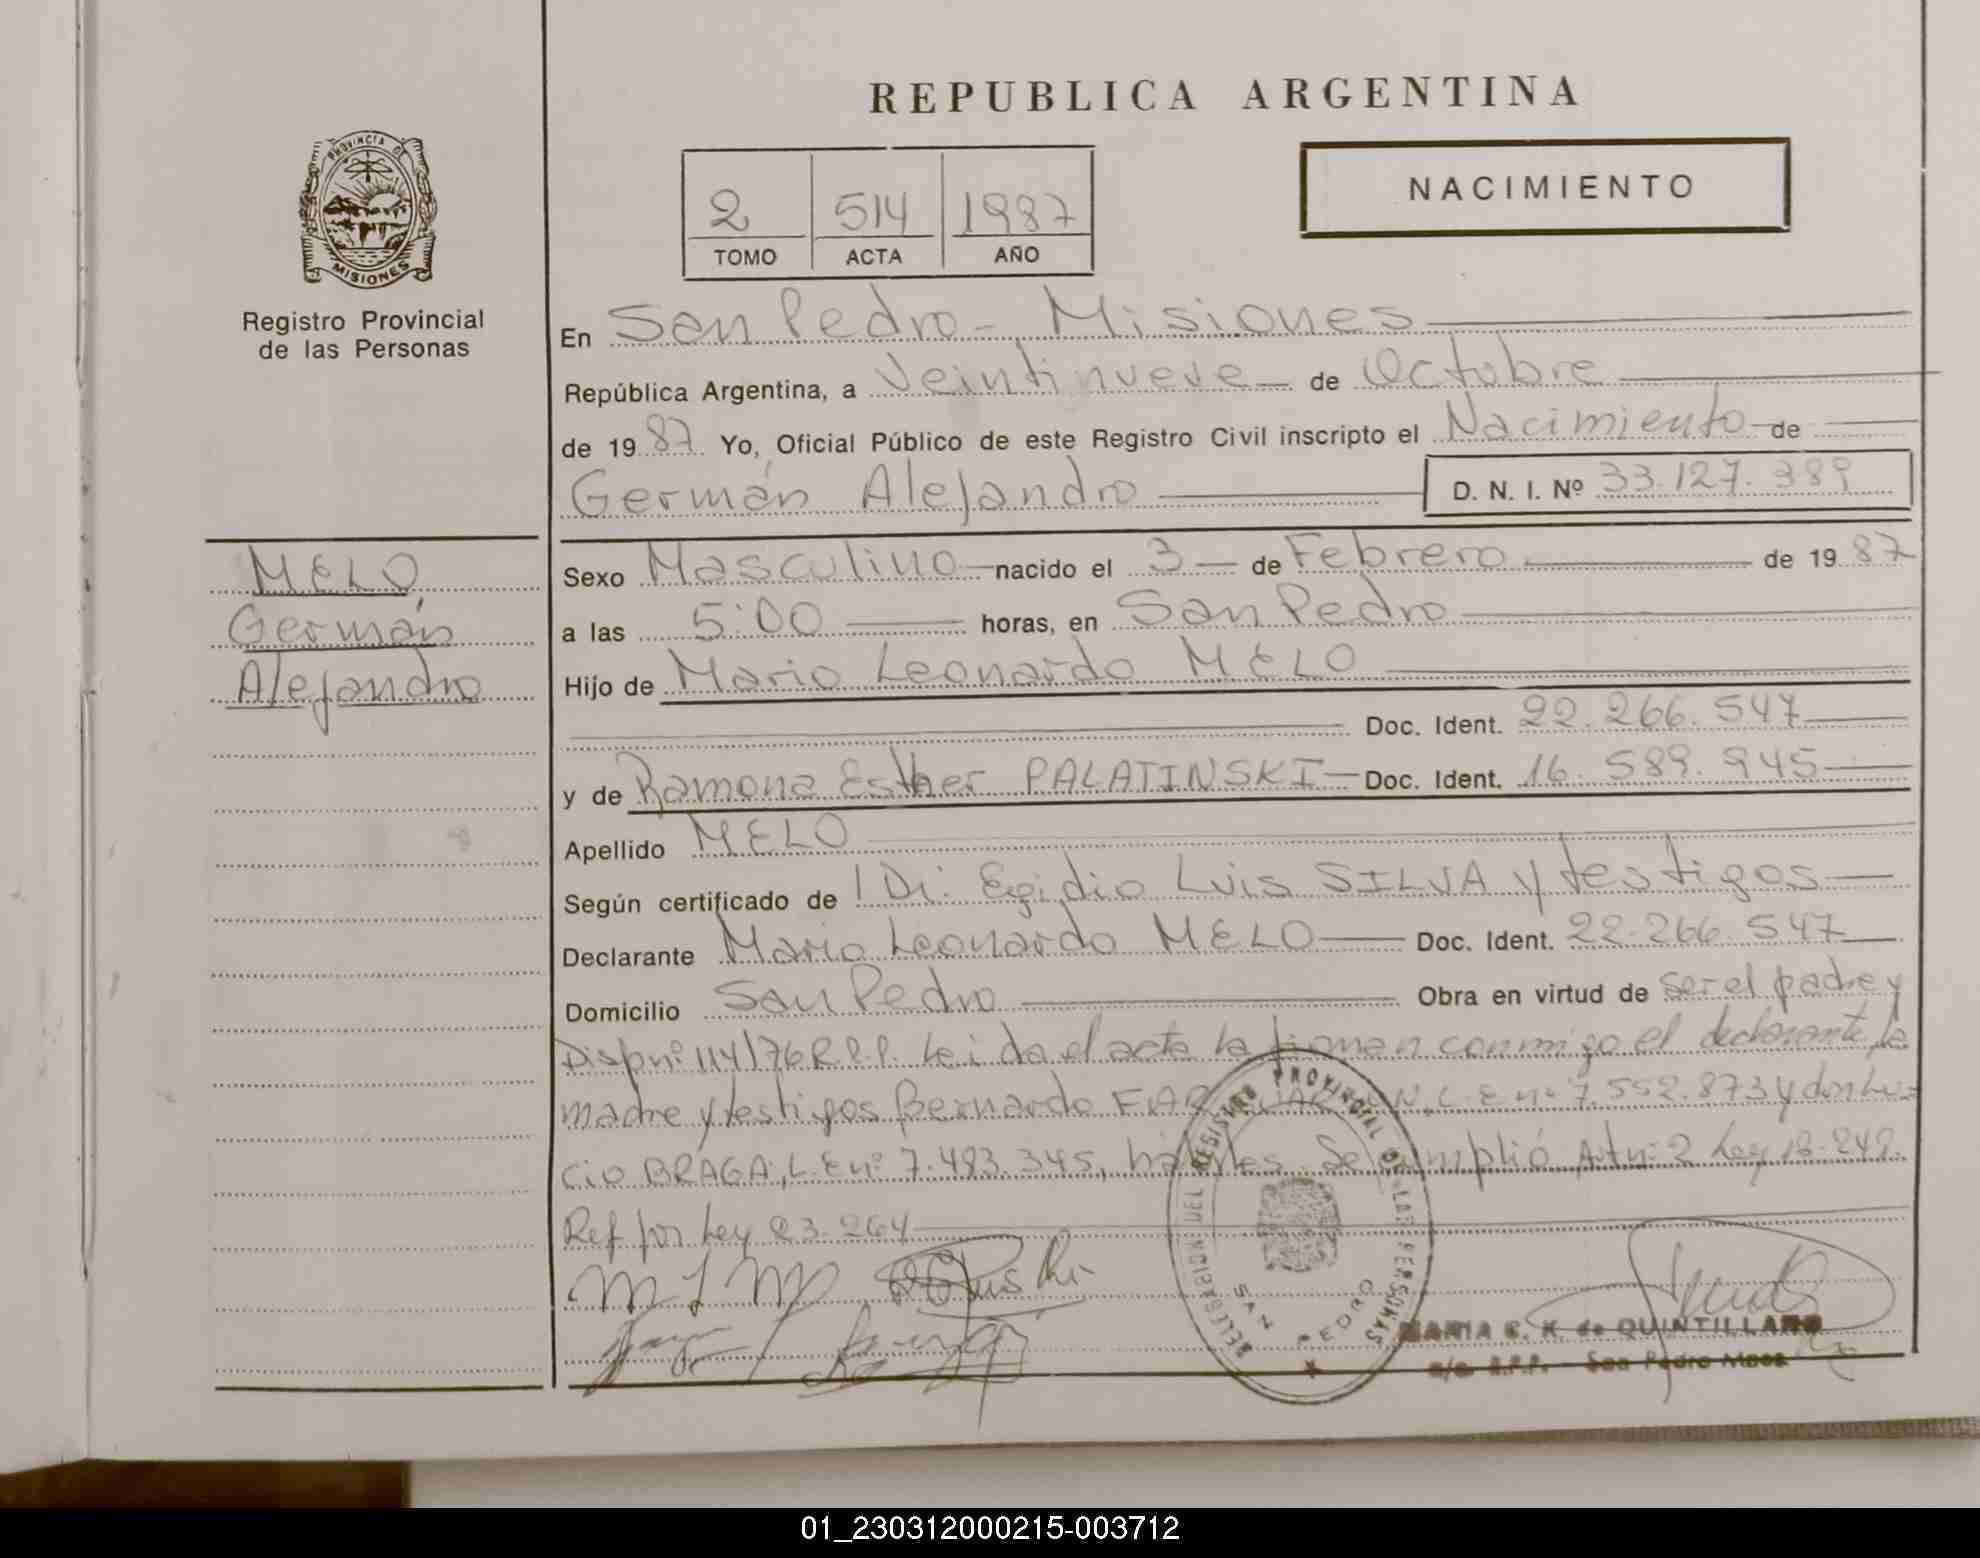 REPUBLICA ARGENTINA
PROVINCIA DE
MISIONES
Registro Provincial
de las Personas
2 514 1987
TOMO ACTA AÑO
NACIMIENTO
En San Pedro - Misiones
República Argentina, a Veintinueve de Octubre
de 1987. Yo, Oficial Público de este Registro Civil inscripto el Nacimiento de
Germán Alejandro D. N. I. Nº 33.127.389
MELO
Germán
Alejandro
Sexo Masculino nacido el 3 de Febrero de 1987
a las 5:00 horas, en San Pedro
Hijo de Mario Leonardo MELO
Doc. Ident. 22.266.547
y de Ramona Esther PALATINSKI Doc. Ident. 16.589.945
Apellido MELO
Según certificado de Egidio Luis SILVA y testigos
Declarante Mario Leonardo MELO Doc. Ident. 22.266.547
Domicilio San Pedro Obra en virtud de ser el padre y
Disp nº 114/76 R.P.P. Leida el acta la firman conmigo el declarante, la
madre y testigos Bernardo L.E nº 7.552.873 y don Lu=
cio BRAGA, L.E nº 7.493.345, hábiles. Se cumplió Art nº 2 Ley 18.248.
Ref por Ley 23.264
DELEGACION DEL REGISTRO PROVINCIAL DE LAS PERSONAS
SAN PEDRO
MARIA K. de QUINTILLAN
R.P.P. - San Pedro Mnes
01_230312000215-003712